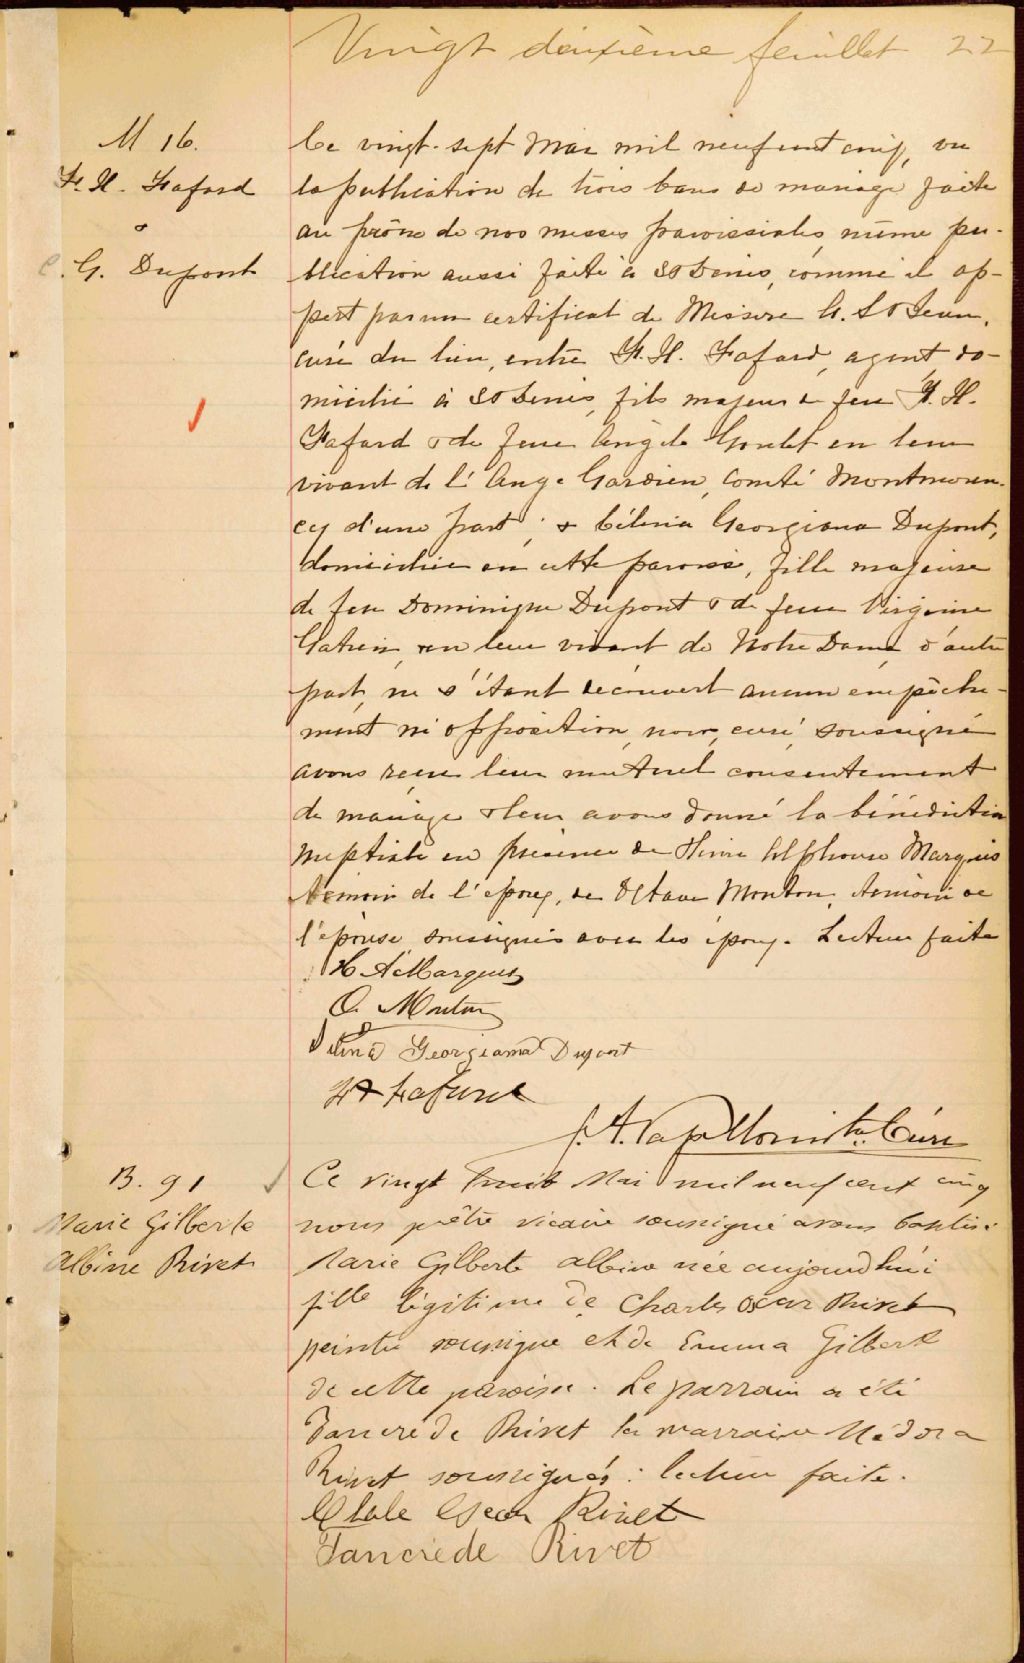 Vingt deuxième feuillet 22
M 16.
F. H. Fafard
&
C. G. Dupont
Ce vingt-sept Mai mil neuf cent cinq, vu
la publication de trois bans de mariage faite
au prône de nos messes paroissiales, même pu-
blication aussi faite à St Denis, comme il ap-
pert par un certificat de Messire G. St Jean,
curé du lieu, entre F. H. Fafard, agent do-
micilié à St Denis, fils majeur de feu F. H.
Fafard & de feue Angèle Goulet en leur
vivant de l'Ange Gardien, Comté Montmoren-
cy d'une part; & Célina Georgiana Dupont,
domiciliée en cette paroisse, fille majeure
de feu Dominique Dupont & de feue Virginie
en leur vivant de Notre Dame, d'autre
part, ne s'étant découvert aucun empêche-
ment ni opposition, nous, curé, soussigné
avons reçu leur mutuel consentement
de mariage & leur avons donné la bénédiction
nuptiale en présence de Alphonse Marquis
témoin de l'époux, de Octave Monton, témoin de
l'épouse soussignés avec les époux. Lecture faite
H A Marquis
O. Monton
Georgiana Dupont
F H Fafard
Curé
B. 91
Marie Gilberte
Albine Rivet
Ce vingt huit Mai mil neuf cent cinq
nous prêtre vicaire soussigné avons baptisé
Marie Gilberte Albine née aujourd'hui
fille légitime de Charles Oscar Rivet
peintre soussigné et de Emma Gilbert
de cette paroisse. Le parrain a été
Tancrède Rivet la marraine Médora
Rivet soussignés: lecture faite.
Oscar Rivet
Tancrède Rivet